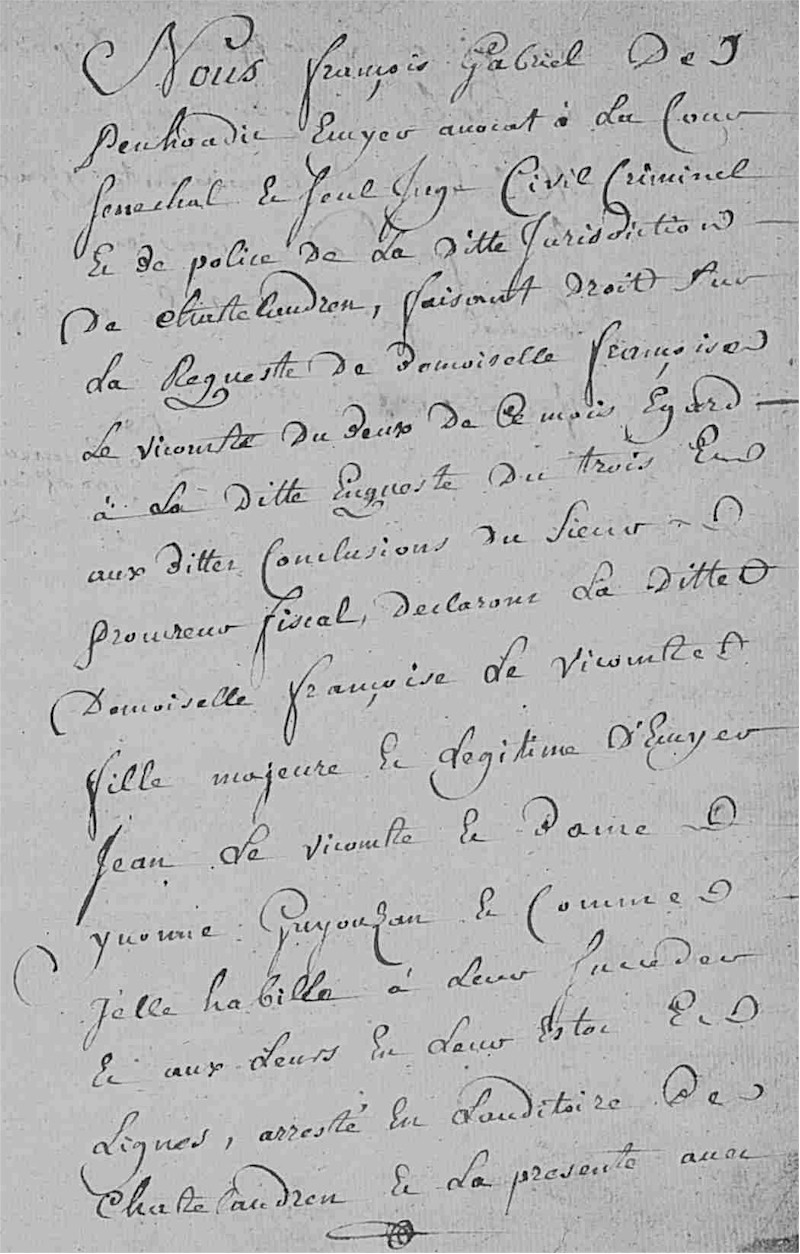 Nous françois Gabriel De
Penhoadic Ecuyer avocat à La Cour
Senechal Et Seul Juge Civil Criminel
Et de police de La Ditte Jurisdiction
De Chatelaudren, faisant Droit Sur
La Requeste De Demoiselle françoise
Le vicomte Du deux De Ce mois Egard
à La Ditte Enqueste Du trois Et
aux dittes Conclusions Du Sieur
procureur fiscal, Declarons La Ditte
Demoiselle françoise Le Vicomte
fille majeure Et Legitime D'Ecuyer
Jean Le vicomte Et Dame
yvonne Guyouzan Et Comme
telle habille à Leur Succeder
Et aux Leurs En Leur Estoc Et
Lignes, arresté En Lauditoire De
Chatelaudren Et La presente avec